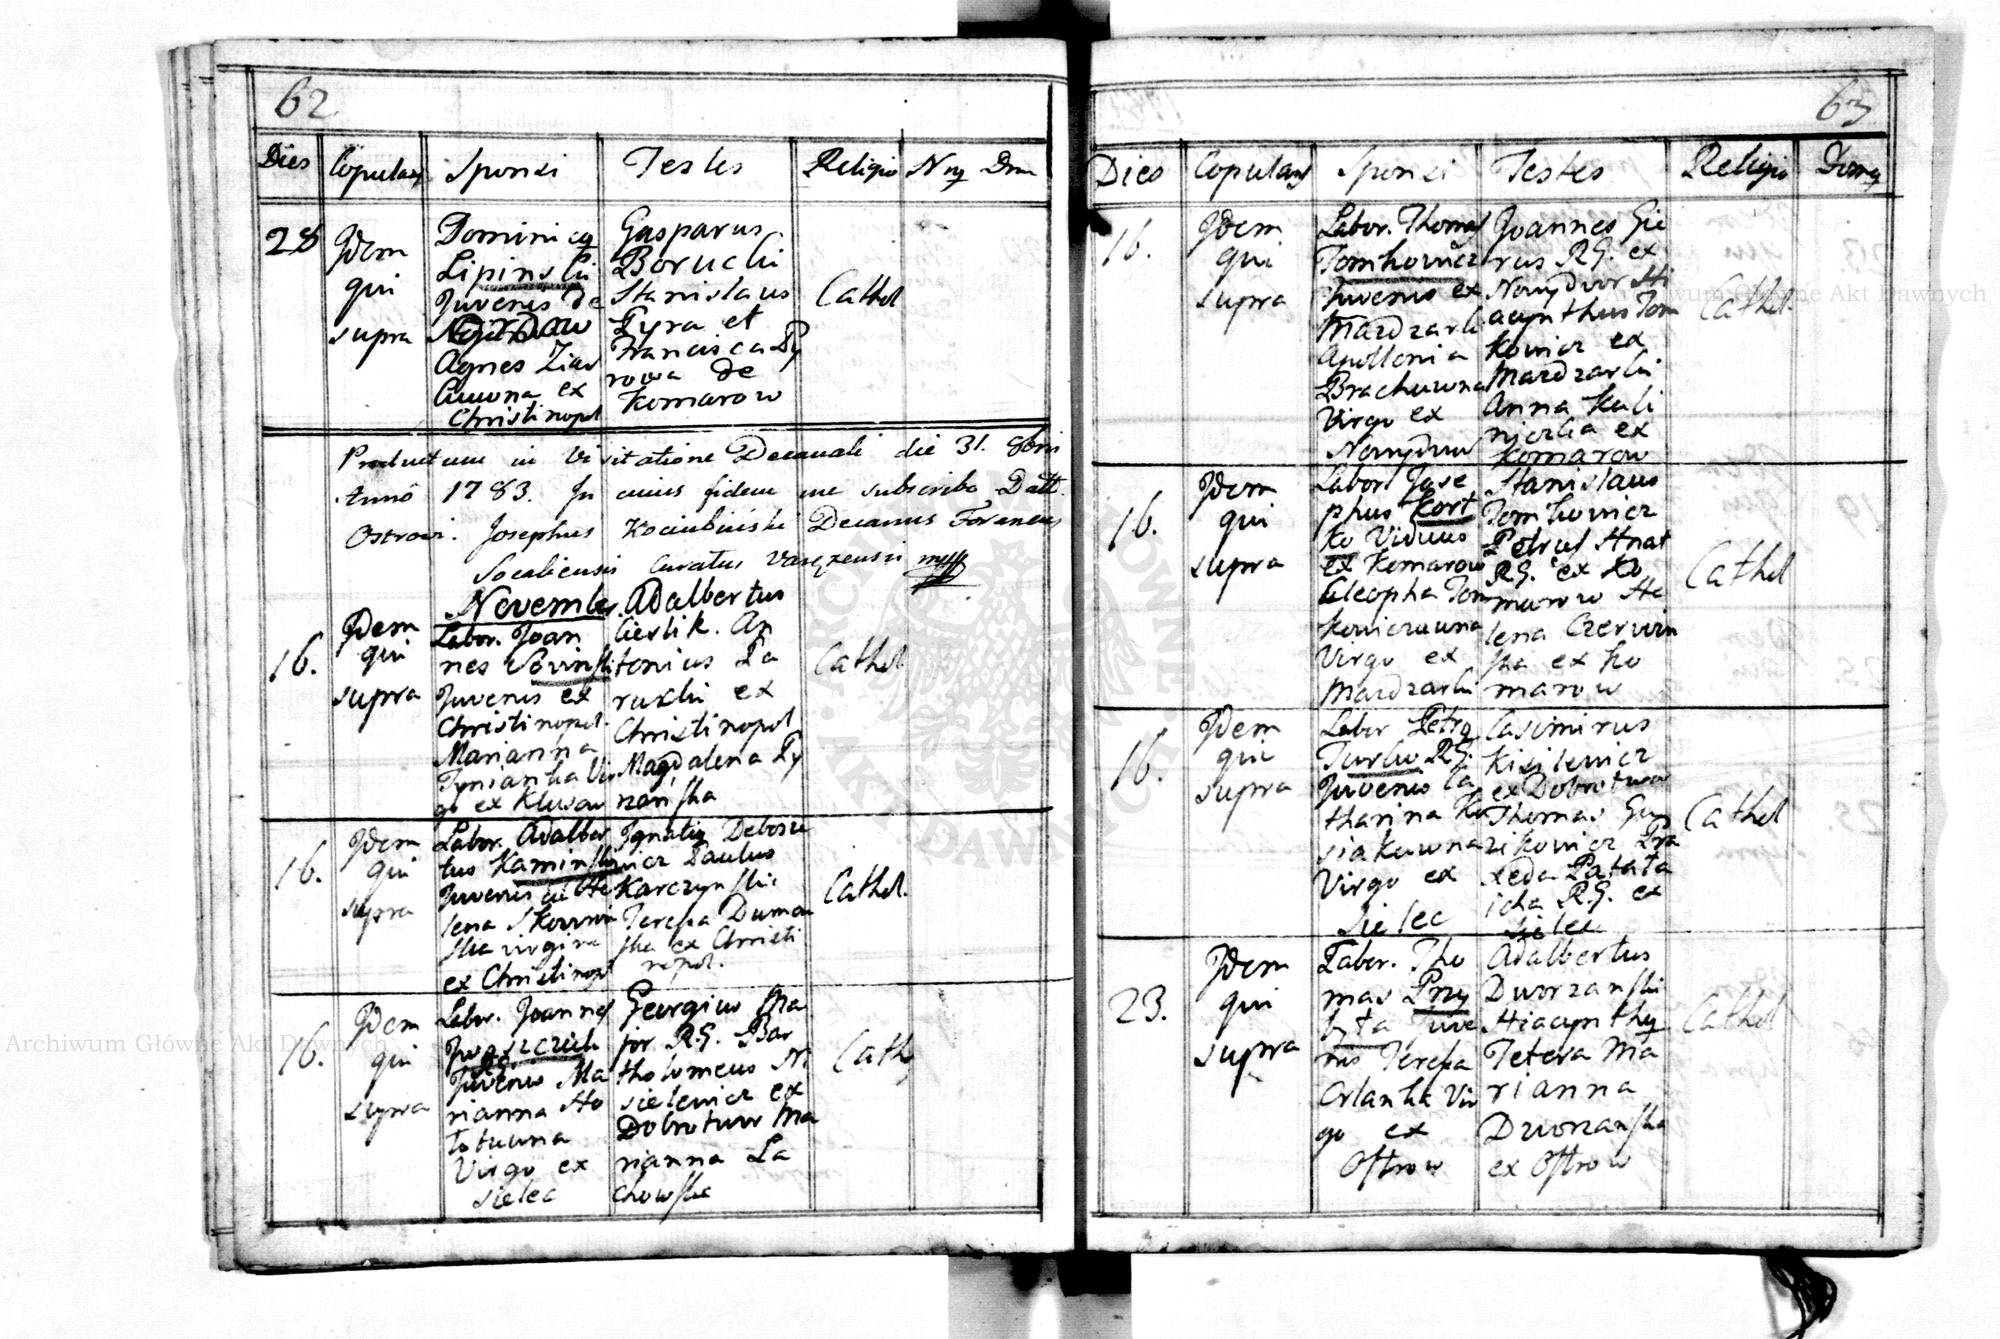 62
Dies Copulans Sponsi Testes Religio Nrus Dom
28
Idem
qui
supra
Dominicus
Lipinski
Juvenis de
Agnes Ziar
ex
Christinopol
Gasparus
Borucki
Stanislaus
Pyra et
Francisca Py
rowa de
Komarow
Cathol
Productum in Visitatione Decanali die 31. 8bris
Anno 1783. In cuius fidem me subscribo Datt.
Ostrow. Josephus Kociubinski Decanus Foraneus
Socaliensis Curatus Varezensis mpp
November
16.
Idem
qui
supra
Labor. Joan
nes
Juvenis ex
Christinopol.
Marianna
Tynianka Vir
go ex
Adalbertus
Cieslik. An
tonius La
ruski ex
Christinopol
Magdalena Ty
nianska
Cathol
16.
Idem
qui
supra
Labor. Adalber
tus Kaminski
Juvenis cu He
lena Skowron
ska virgine
ex Christinopol
Ignatius
wicz Paulus
Karczynski
Teressa Duman
ska ex Christi
nopol.
Cathol.
16.
Idem
qui
supra
Labor. Joannes
Iwaszczuk
Juvenis Ma
rianna Ho
Virgo ex
Sielec
Georgius Ma
jor R.G. Bar
tholomeus Ki
sielewicz ex
Dobrotwor Ma
rianna La
chowska
Cath
63
Dies Copulans Sponsi Testes Religio Domus
16.
Idem
qui
supra
Labor. Thomas
Tomkowicz
Juvenis ex
Mardzarki
Apollonia
Brachuwna
Virgo ex
Nowydwor
Joannes Gie
rus R.G. ex
Nowydwor Hi
acynthus Tom
kowicz ex
Mardzarki
Anna Kali
niczka ex
Komarow
Cathol.
16.
Idem
qui
supra
Labor. Jose
phus Kort
ko Viduus
ex Komarow
Cleopha Tom
kowiczuwna
Virgo ex
Mardzarki
Stanislaus
Tomkowicz
Petrus Hnat
R.G. ex Ko
marow He
lena Czerwin
ska ex Ko
marow
Cathol
16.
Idem
qui
supra
Labor Petrus
Turko R.G.
Juvenis Ca
tharina Ku
siakuwna
Virgo ex
Sielec
Casimirus
Kisilewicz
ex Dobrotwor
Thomas Guz
zikowicz Pra
xeda Patata
icha R.G. ex
Sielec
Cathol
23.
Idem
qui
supra
Labor. Tho
mas Przy
byta Juve
nis Teressa
Orlanka Vir
go ex
Ostrow
Adalbertus
Dworzanski
Hiacynthus
Tetera Ma
rianna
Dworzanska
ex Ostrow
Cathol
Archiwum Główne Akt Dawnych
Archiwum Główne Akt Dawnych
ARCHIWUM GŁÓWNE AKT DAWNYCH